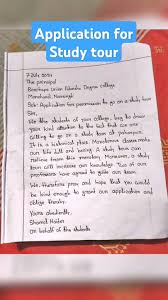 Application for
Study tour
7 July 2024
The principal
Degree college
Monohardi, Narsingdi
Sub: Application for permission to go on a study tour
Sir,
We the students of your college, beg to draw
your kind attention to the fact that we are
willing to go on a study tour at
It is a historical place. Monotonous classes make
our life dull and boring. A study tour can
relieve from this monotony. Moreover, a study
tour will increase our knowledge. Two of our
professors have agreed to guide our team.
We therefore, pray and hope that you would
be kind enough to grant our application and
oblige thereby.
Yours obediently,
On behalf of the students